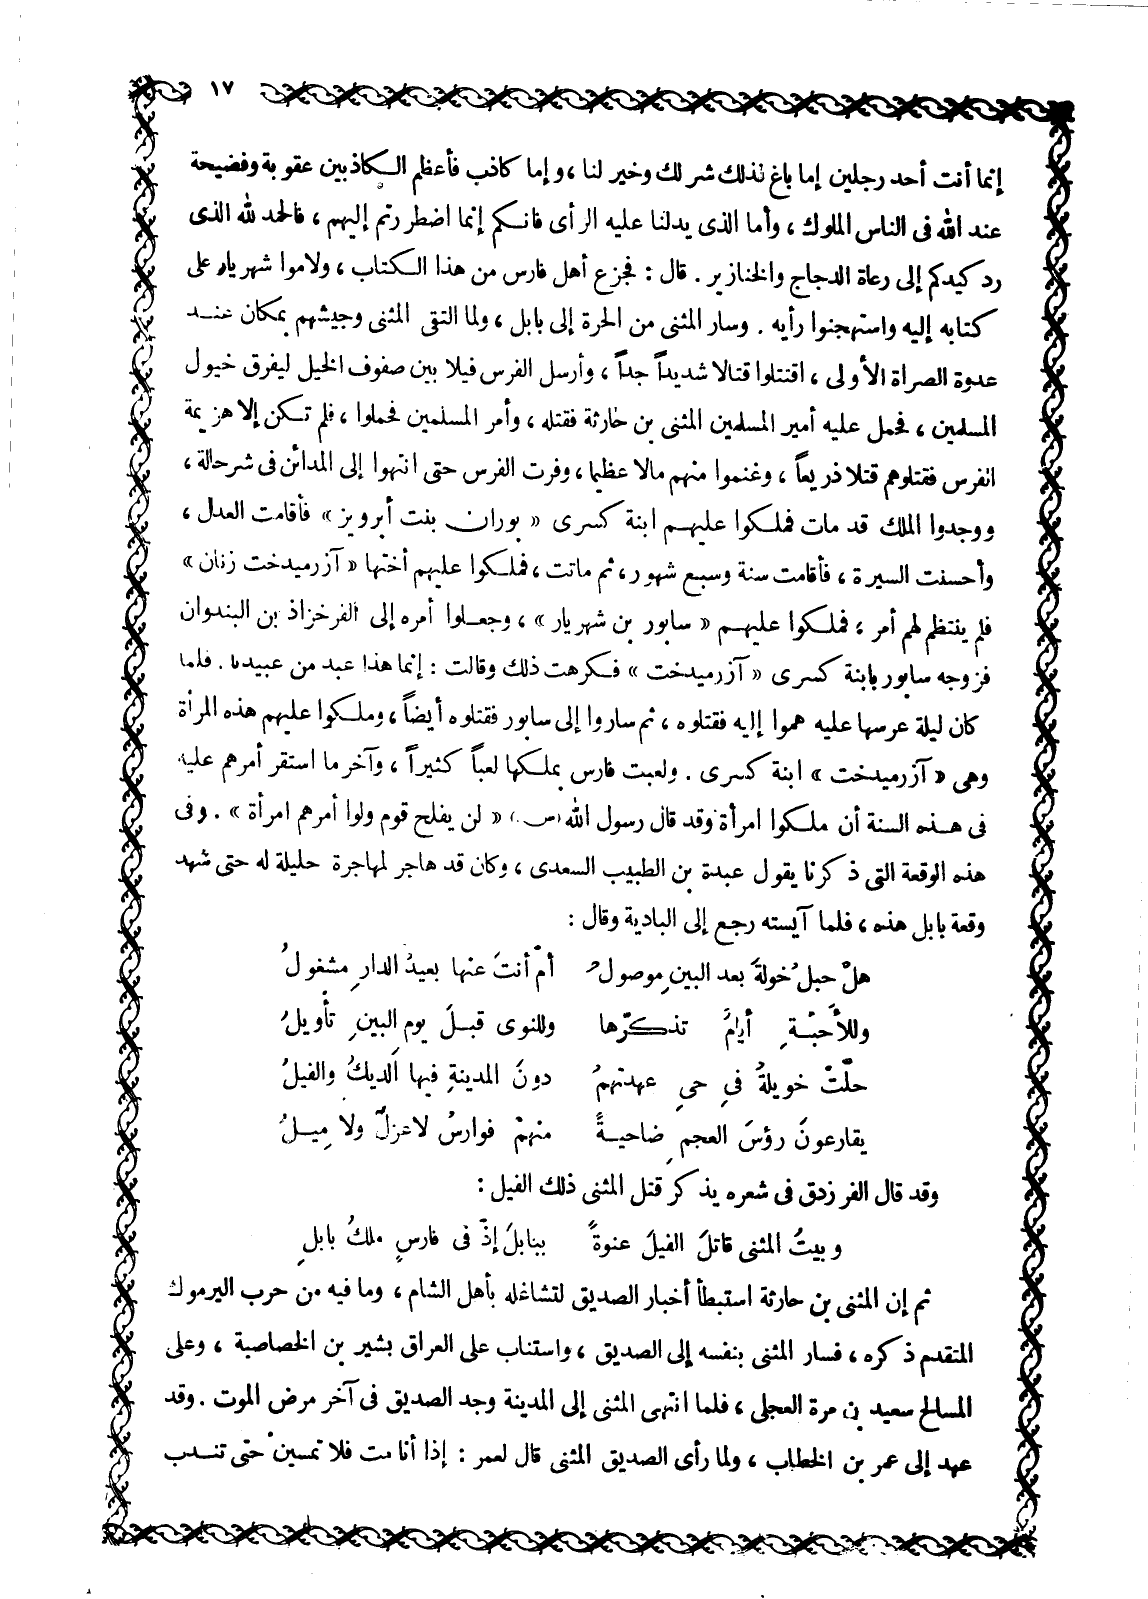 ١٧
إنما أنت أحد رجلين إما باغ فذلك شر لك وخير لنا ، وإما كاذب فأعظم الكاذبين عقوبة وفضيحة
عند الله فى الناس الملوك ، وأما الذى يدلنا عليه الرأى فانكم إنما اضطررتم إليهم ، فالحمد لله الذى
رد كيدكم إلى رعاة الدجاج والخنازير . قال : فجزع أهل فارس من هذا الكتاب ، ولاموا شهريار على
كتابه إليه واستهجنوا رأيه . وسار المثنى من الحرة إلى بابل ، ولما التقى المثنى وجيشهم بمكان عند
عدوة الصراة الأولى ، اقتتلوا قتالا شديداً جداً ، وأرسل الفرس فيلا بين صفوف الخيل ليفرق خيول
المسلمين ، فحمل عليه أمير المسلمين المثنى بن حارثة فقتله ، وأمر المسلمين فحملوا ، فلم تكن إلا هزيمة
الفرس فقتلوهم قتلا ذريعاً ، وغنموا منهم مالا عظيما ، وفرت الفرس حتى انتهوا إلى المدائن فى شر حالة ،
ووجدوا الملك قد مات فملكوا عليهم ابنة كسرى « بوران بنت أبرويز » فأقامت العدل ،
وأحسنت السيرة ، فأقامت سنة وسبع شهور ، ثم ماتت ، فملكوا عليهم أختها « آزرميدخت زنان »
فلم ينتظم لهم أمر ، فملكوا عليهم « سابور بن شهريار » ، وجعلوا أمره إلى الفرخزاذ بن البندوان
فزوجه سابور بابنة كسرى « آزرميدخت » فكرهت ذلك وقالت : إنما هذا عبد من عبيدنا . فلما
كان ليلة عرسها عليه هموا إليه فقتلوه ، ثم ساروا إلى سابور فقتلوه أيضاً ، وملكوا عليهم هذه المرأة
وهى « آزرميدخت » ابنة كسرى . ولعبت فارس بملكها لعباً كثيراً ، وآخر ما استقر أمرهم عليه
فى هذه السنة أن ملكوا امرأة وقد قال رسول الله (ص.) « لن يفلح قوم ولوا أمرهم امرأة » . وفى
هذه الوقعة التى ذكرنا يقول عبدة بن الطبيب السعدى ، وكان قد هاجر لمهاجرة حليلة له حتى شهد
وقعة بابل هذه ، فلما آيسته رجع إلى البادية وقال :
هلْ حبلُ خولةَ بعد البينِ موصولُ أمْ أنتَ عنها بعيدُ الدارِ مشغولُ
وللأَحبَّةِ أيامٌ تذكّرها وللنوى قبلَ يومِ البينِ تأويلُ
حلّتْ خويلةُ فى حىٍ عهدتهمُ دونَ المدينةِ فيها الديكُ والفيلُ
يقارعونَ رؤسَ العجمِ ضاحيةً منهمْ فوارسُ لا عزلٌ ولا ميلُ
وقد قال الفرزدق فى شعره يذكر قتل المثنى ذلك الفيل :
وبيتُ المثنى قاتلَ الفيلَ عنوةً ببابلَ إذْ فى فارسٍ ملكُ بابلِ
ثم إن المثنى بن حارثة استبطأ أخبار الصديق لتشاغله بأهل الشام ، وما فيه من حرب اليرموك
المتقدم ذكره ، فسار المثنى بنفسه إلى الصديق ، واستناب على العراق بشير بن الخصاصية ، وعلى
المسالح سعيد بن مرة العجلى ، فلما انتهى المثنى إلى المدينة وجد الصديق فى آخر مرض الموت . وقد
عهد إلى عمر بن الخطاب ، ولما رأى الصديق المثنى قال لعمر : إذا أنا مت فلا تمسين حتى تندب